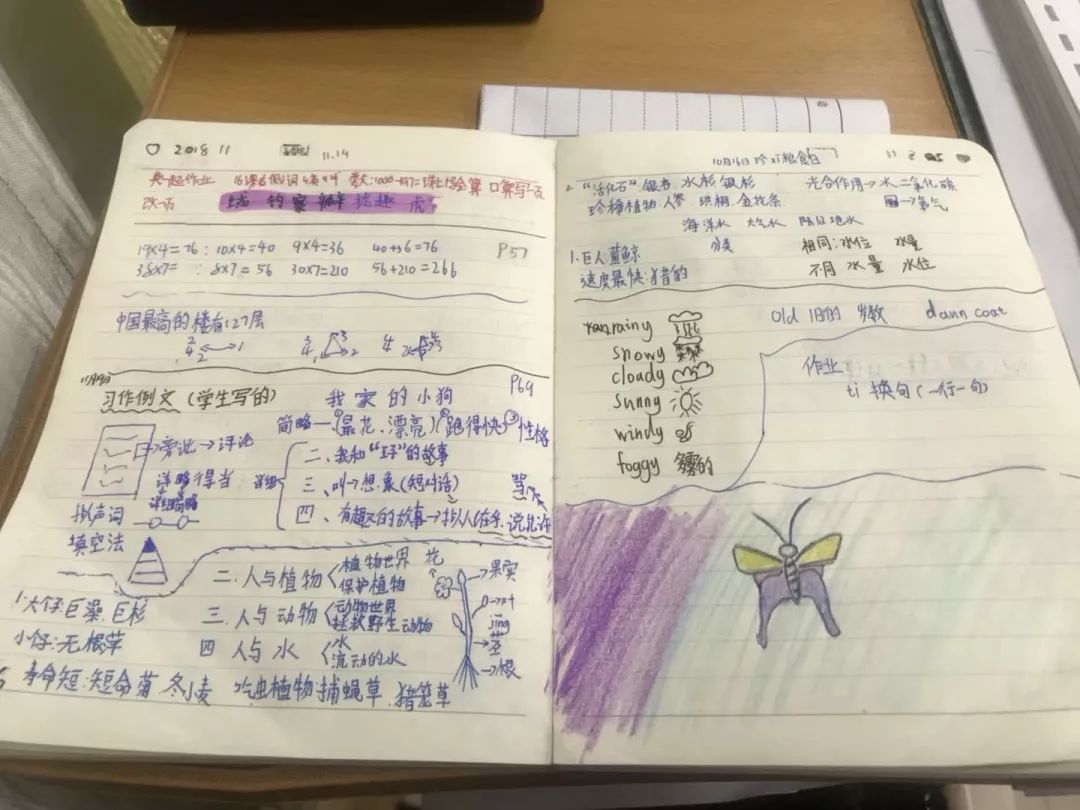 2018 11 11.14
一起作业 16课 词 4 数:1000-197= 珠 验算 口算写一页
改一页 钓 家 蝉 趣 虎
19×4=76 : 10×4=40 9×4=36 40+36=76 P57
38×7= : 8×7=56 30×7=210 56+210=266
中国最高的楼有127层
11月9日
习作例文(学生写的) 我家的小狗 P69
简略一(①最花、漂亮)(②跑得快)③性格
旁批→评论
二、我和“王子”的故事
详略得当 详细
三、叫→想象(短对话)
详细简略
拟声词
四、有趣的故事→拟人(在乎、说允许
填空法
二.人与植物 植物世界 花
保护植物
果实
1.大仔:巨藻.巨杉
三.人与动物 动物世界
拯救野生动物
叶
jīng
茎
小仔:无根萍
四 人与水 水
流动的水
根
寿命短:短命菊 冬小麦 吃虫植物:捕蝇草.猪笼草
10月16日 珍xi粮食日 11
“活化石”银杏.水杉 银杉 光合作用→水 二氧化碳
珍稀植物:人参.珙桐.金花茶 →氧气
海洋水 大气水 陆地水
分类 相同:水位 水量
1.巨人蓝鲸
不同 水量 水位
速度最快:猎豹
old 旧的 岁数 down coat
ran rainy
snowy
cloady
sunny
windy
foggy 雾的
作业
ti 换句(一行一句)